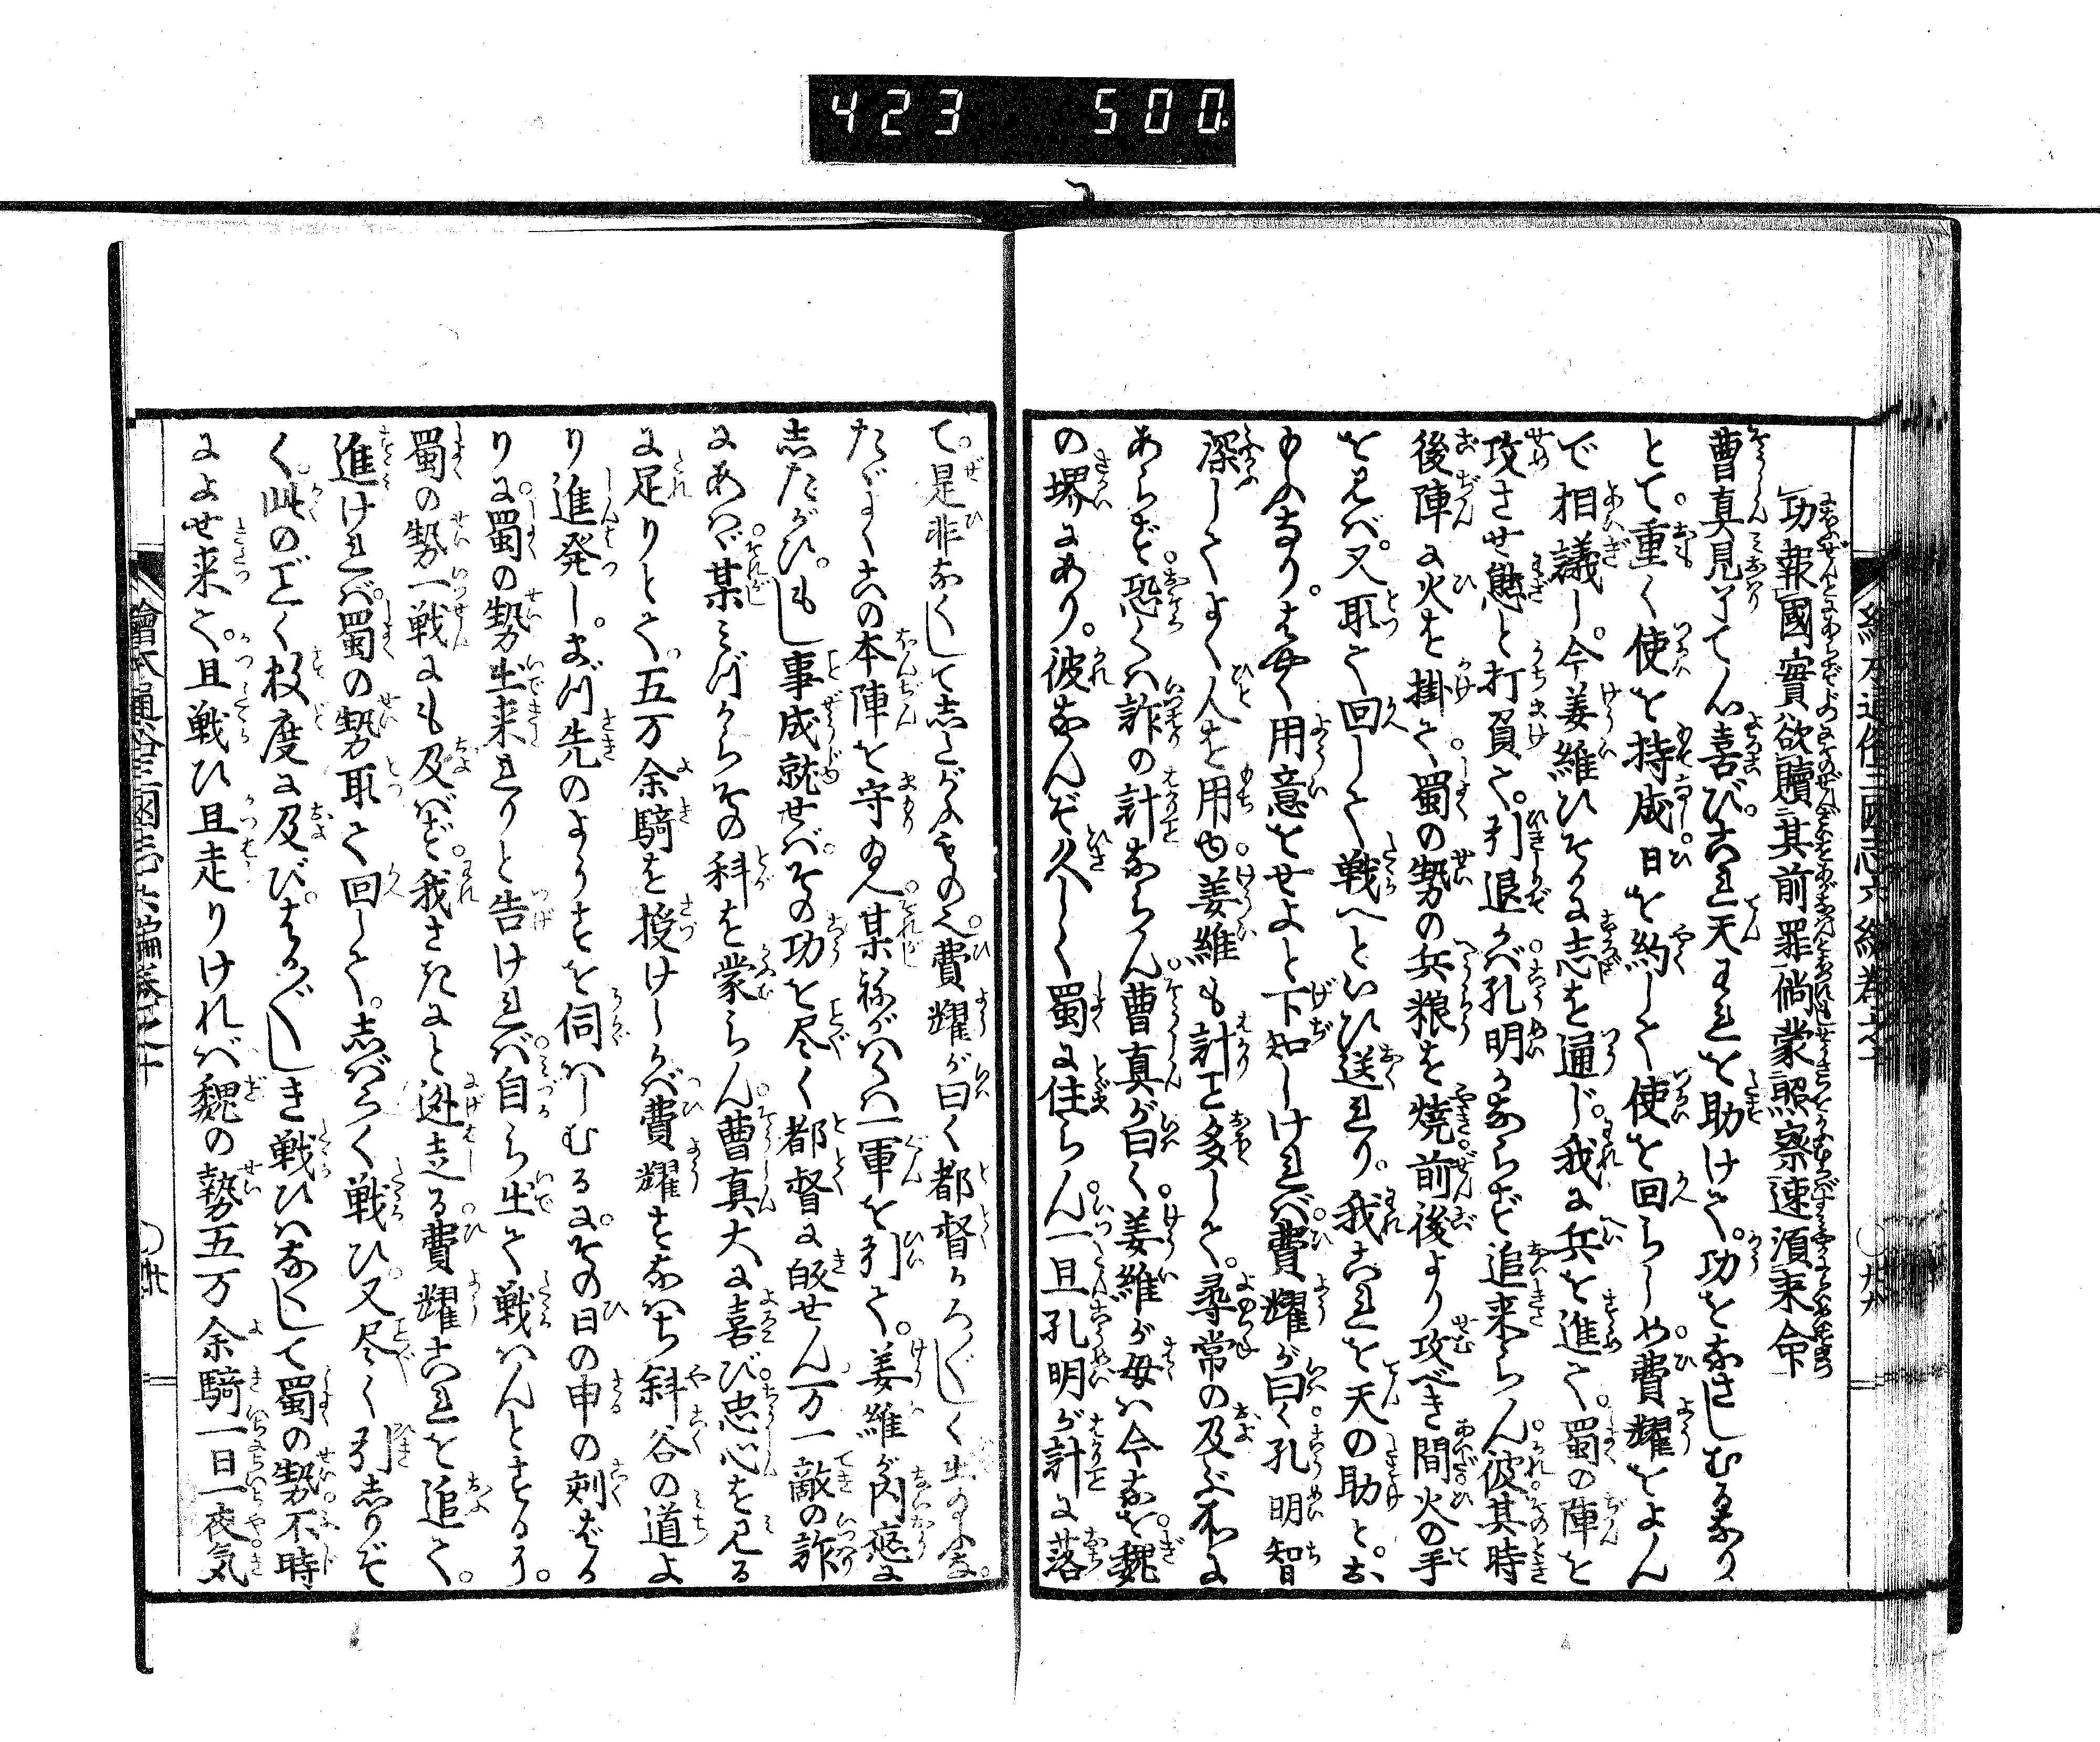 423 500.
功報國實欲贖其前罪倘蒙照察速須来命
曹真見了て大に喜び。これ天われを助けて。功をなさしむるなり
とて。重く使を持成。日を約して使を回らしめ。費耀をよん
で相議し。今姜維ひそかに志を通じ。我に兵を進て。蜀の陣を
攻させ態と打負て。引退かば。孔明かならず追来らん。彼其時
後陣に火を掛て。蜀の勢の兵粮を焼。前後より攻べき間。火の手
を見ば。又取て回して戦へといひ送れり。我これを天の助と。お
もふなり。はやく用意をせよと下知しければ。費耀が曰く。孔明智
深してよく人を用ゆ。姜維も計こと多して。尋常の及ぶ所に
あらず。恐くは詐の計ならん。曹真が曰く。姜維が母は今なを魏
の堺にあり。彼なんぞ久しく蜀に住らん。一旦孔明が計に落
て。是非なくして志たがふもの也。費耀が曰く都督かろ〴〵しく出給ふな。
たゞよくこの本陣を守り給へ。某ねがはくは一軍を引て。姜維が内應に
志たがひ。もし事成就せば。その功を尽く都督に皈せん。万一敵の詐
にあはゞ。某みづからその科を蒙らん。曹真大に喜び。忠心を見る
に足りとて。五万余騎を授けしかば。費耀すなはち斜谷の道よ
り進発し。まづ先のようすを伺はしむるに。その日の申の刻ばか
りに。蜀の勢出来れりと告ければ。自ら出て戦はんとするに。
蜀の勢一戦にも及ばず。我さきにと迯走る。費耀これを追て。
進ければ。蜀の勢取て回して。志ばらく戦ひ。又尽く引志りぞ
く。此のごとく数度に及び。はか〴〵しき戦ひはなくして。蜀の勢。不時
によせ来て。且戦ひ且走りければ。魏の勢五万余騎一日一夜。気
繪本通俗三國志六編巻之十